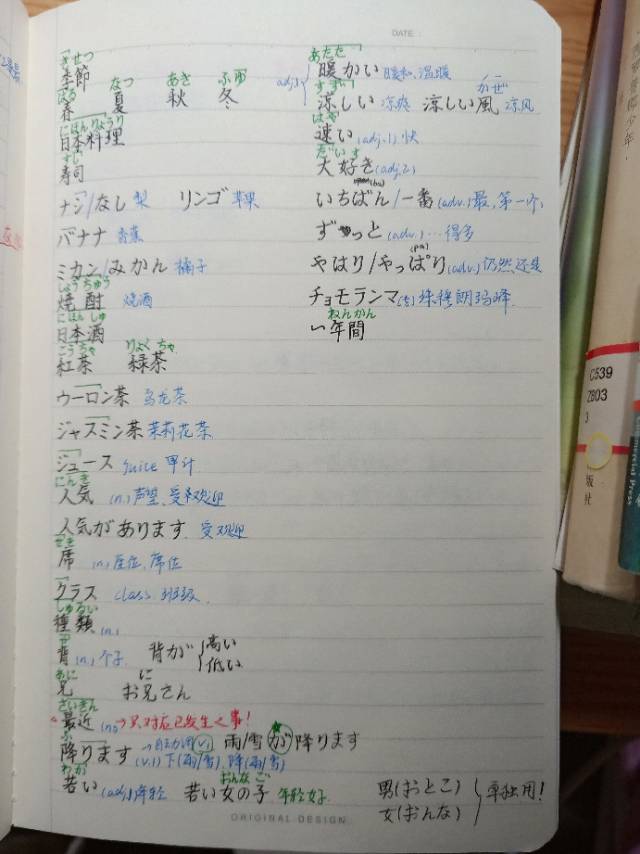 DATE:
きせつ
季節
はる なつ あき ふゆ
春 夏 秋 冬
にほんりょうり
日本料理
すし
寿司
ナシ/なし 梨 リンゴ 苹果
バナナ 香蕉
ミカン/みかん 橘子
しょうちゅう
焼酎 烧酒
にほんしゅ
日本酒
こうちゃ りょくちゃ
紅茶 緑茶
ウーロン茶 乌龙茶
ジャスミン茶 茉莉花茶
ジュース juice 果汁
にんき
人気 (n.) 声望、受欢迎
人気があります 受欢迎
せき
席 (n.) 座位、席位
クラス class 班级
しゅるい
種類 (n.)
せ
背 (n.) 个子 背が{高い
低い
あに に
兄 お兄さん
さいきん
最近 (n.) →只对应已发生之事!
ふ
降ります →自动词(v.1) 雨/雪が降ります
(v.1) 下(雨/雪)、降(雨/雪)
わか おんな こ
若い (adj.1)年轻 若い女の子 年轻女子
あたた
adj.1 暖かい 暖和、温暖
すず かぜ
涼しい 凉爽 涼しい風 凉风
はや
速い (adj.1) 快
だいす
大好き(adj.2)
いちばん/一番(adv.)最,第一个
ずっと (adv.) …得多
(pa)
やはり/やっぱり(adv.)仍然,还是
チョモランマ(专)珠穆朗玛峰
ねんかん
一年間
男(おとこ)
女(おんな) }单独用!
ORIGINAL DESIGN
C539
ZB03
3
版
社